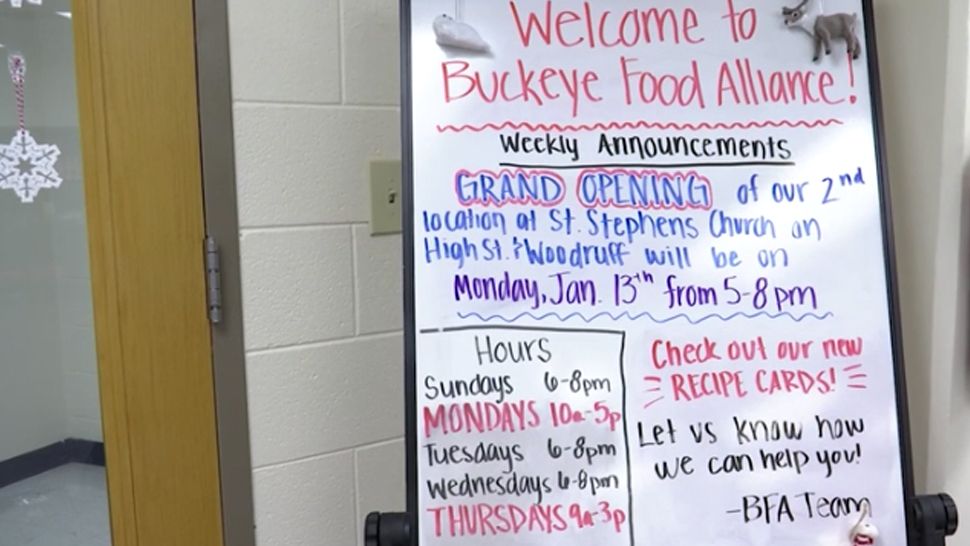 Welcome to
Buckeye Food Alliance!
Weekly Announcements
GRAND OPENING of our 2nd
location at St. Stephens Church on
High St. & Woodruff will be on
Monday, Jan. 13th from 5-8pm
Hours
Sundays 6-8pm
MONDAYS 10a-5p
Tuesdays 6-8pm
Wednesdays 6-8pm
THURSDAYS 9a-3p
Check out our new
RECIPE CARDS!
Let us know how
we can help you!
-BFA Team